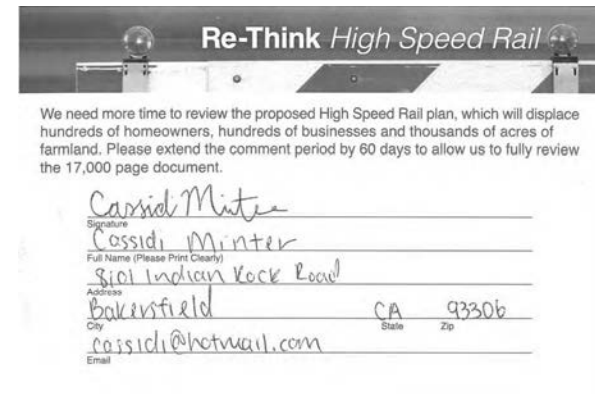 Re-Think High Speed Rail
We need more time to review the proposed High Speed Rail plan, which will displace
hundreds of homeowners, hundreds of businesses and thousands of acres of
farmland. Please extend the comment period by 60 days to allow us to fully review
the 17,000 page document.
Cassidi Minter
Signature
Cassidi Minter
Full Name (Please Print Clearly)
8101 Indian Rock Road
Address
Bakersfield CA 93306
City State Zip
cassidi@hotmail.com
Email